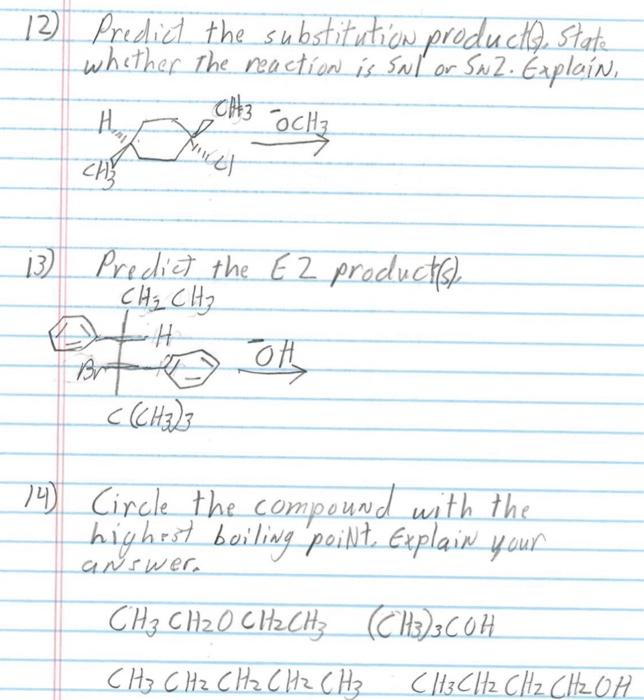 12) Predict the substitution product(s). State
whether The reaction is SN1 or SN2. Explain.
H CH3 -OCH3
CH3 Cl
13) Predict the E2 product(s).
CH2CH3
H -OH
Br
C(CH3)3
14) Circle the compound with the
highest boiling point. Explain your
answer.
CH3CH2OCH2CH3 (CH3)3COH
CH3CH2CH2CH2CH3 CH3CH2CH2CH2OH